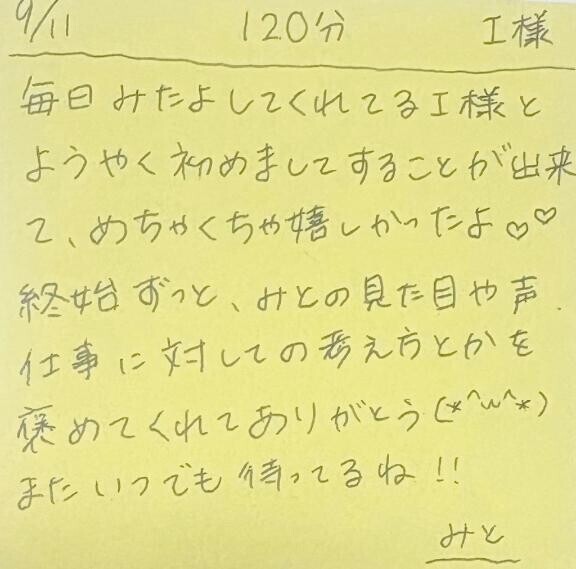 9/11 120分 I様
毎日みたよしてくれてるI様と
ようやく初めましてすることが出来
て、めちゃくちゃ嬉しかったよ♡♡
終始ずっと、みとの見た目や声、
仕事に対しての考え方とかを
褒めてくれてありがとう(*^ω^*)
またいつでも待ってるね!!
みと